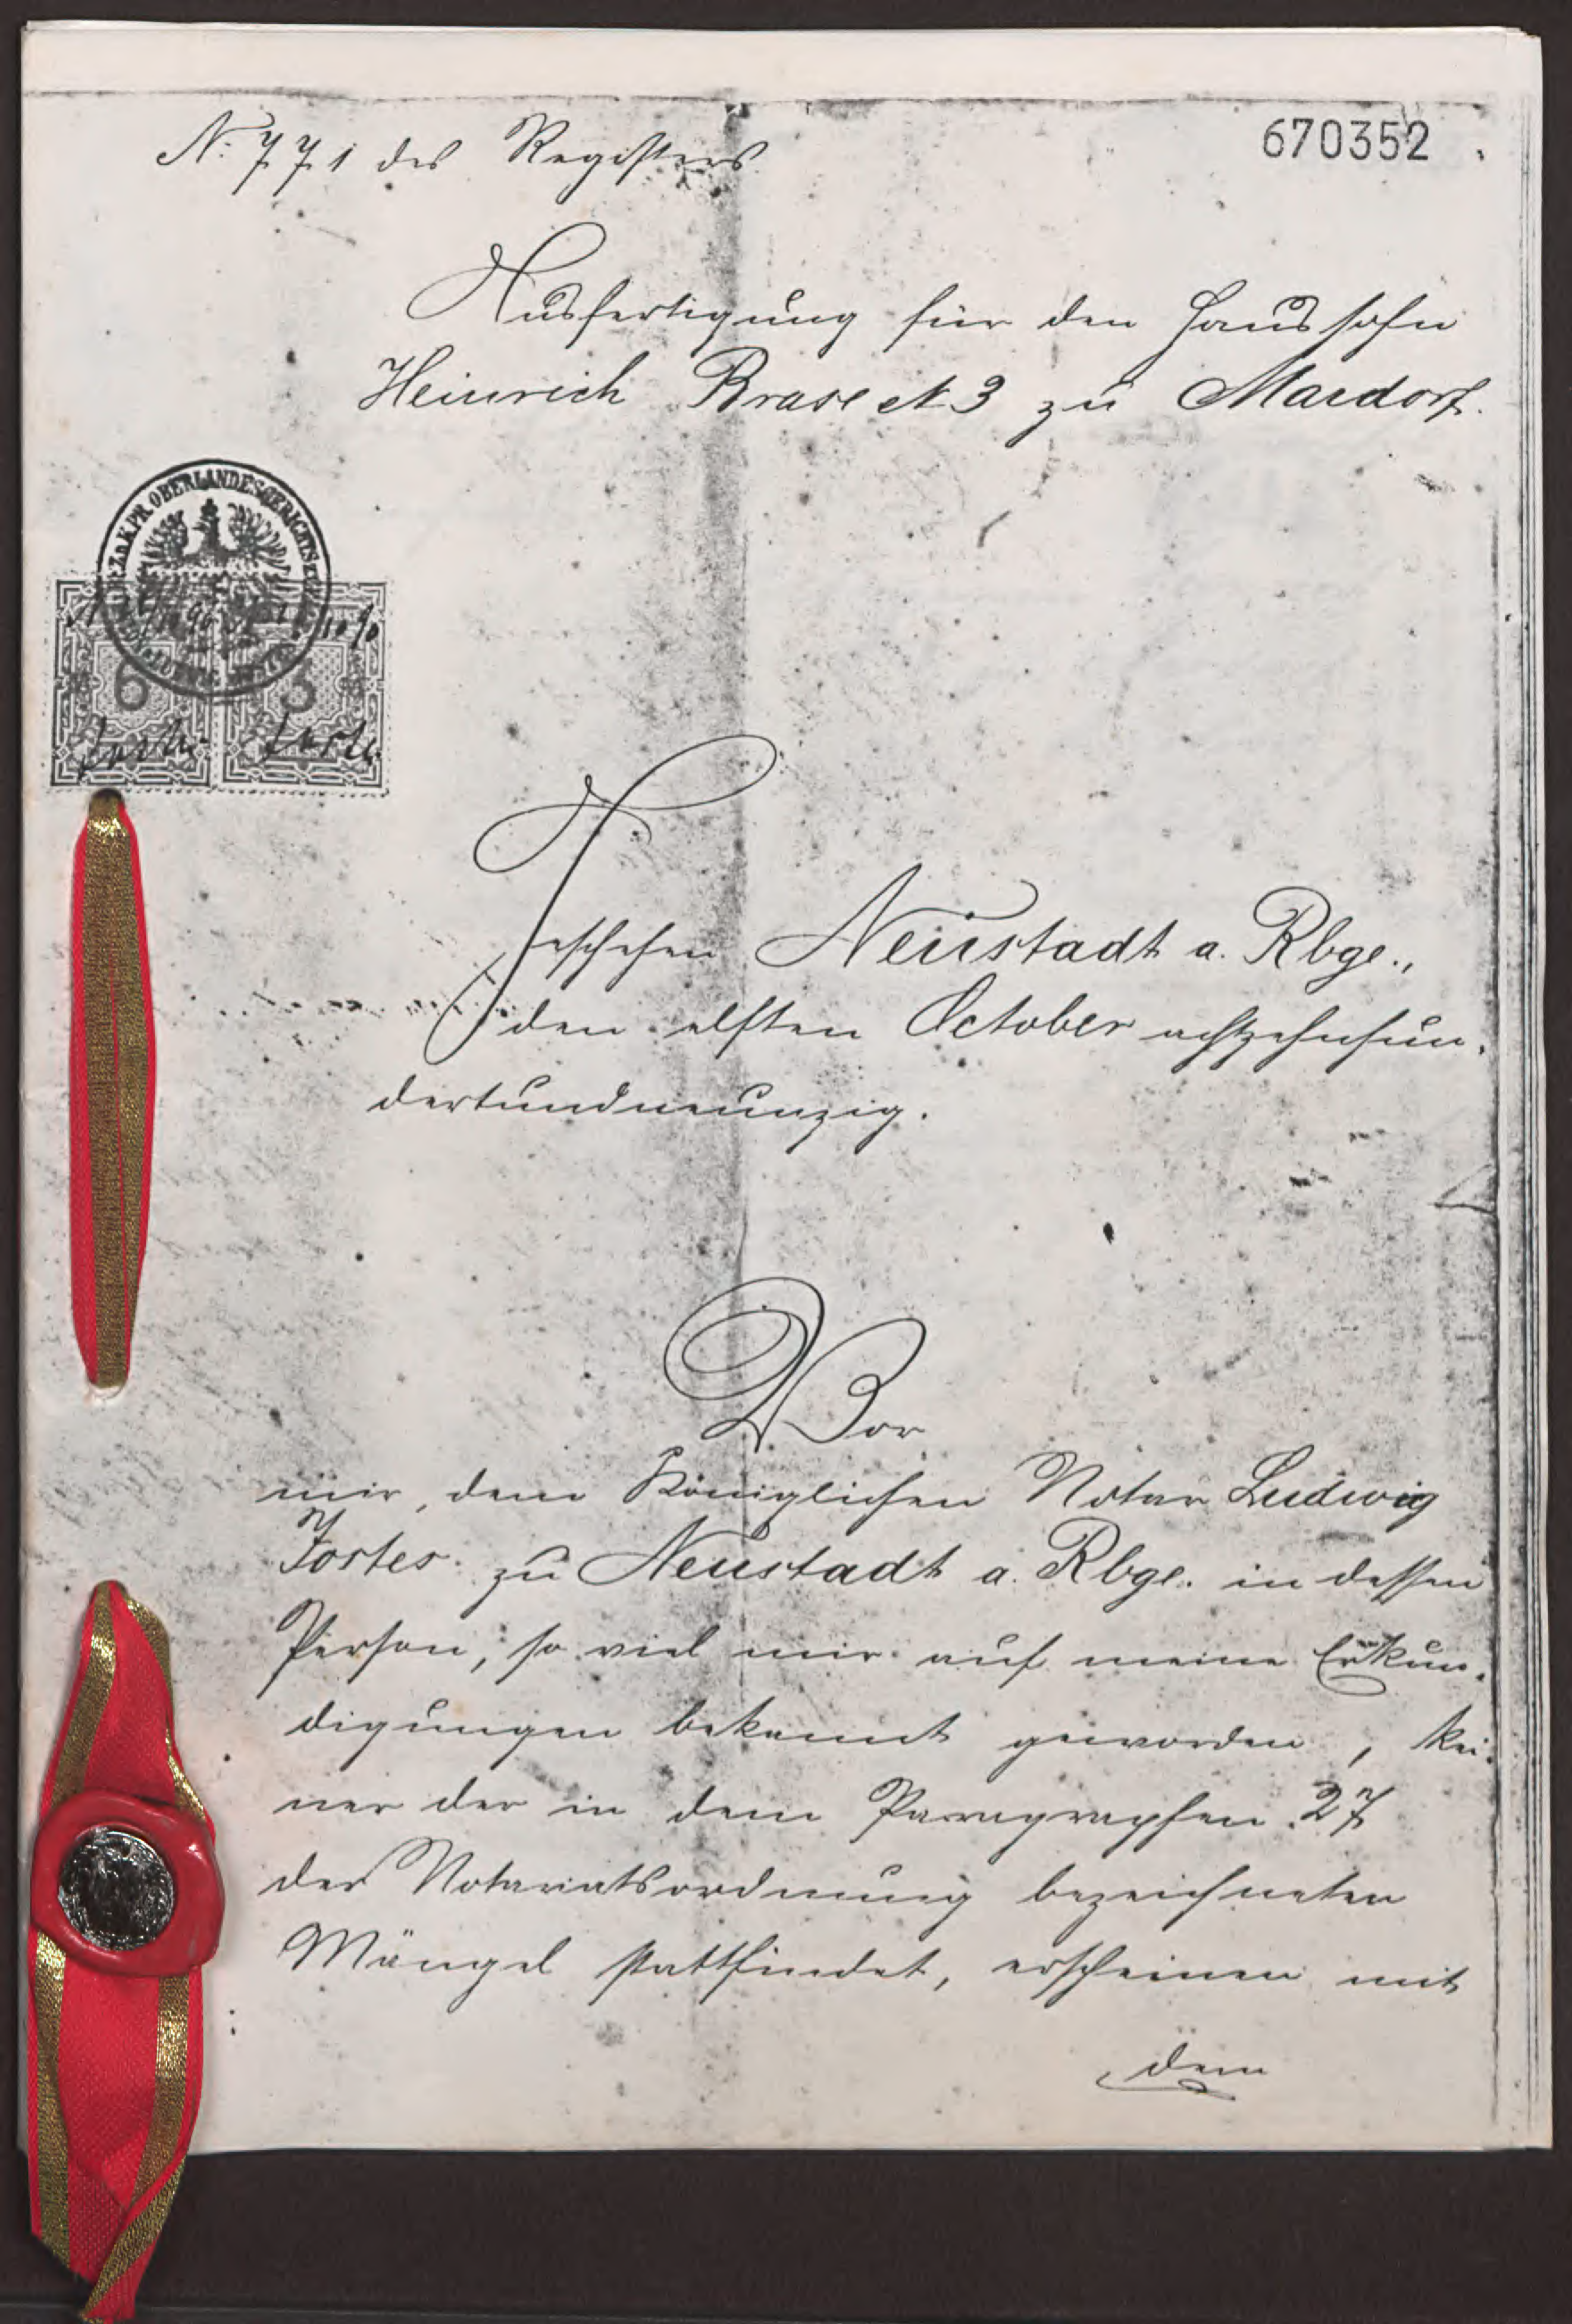 N: 771 des Registers.
670352
Ausfertigung für den Haussohn
Heinrich Brase N 3 zu Mardorf.
OBERLANDESGERICHTS
6
Geschehen Neustadt a. Rbge.,
den elften October achtzehnhun-
dertundneunzig.
Vor
mir, dem Königlichen Notar Ludwig
Jostes zu Neustadt a. Rbge. in dessen
Person, so viel mir auf meine Erkun-
digungen bekannt geworden, kei-
ner der in dem Paragraphen 27
der Notariatsordnung bezeichneten
Mängel stattfindet, erscheinen mit
dem